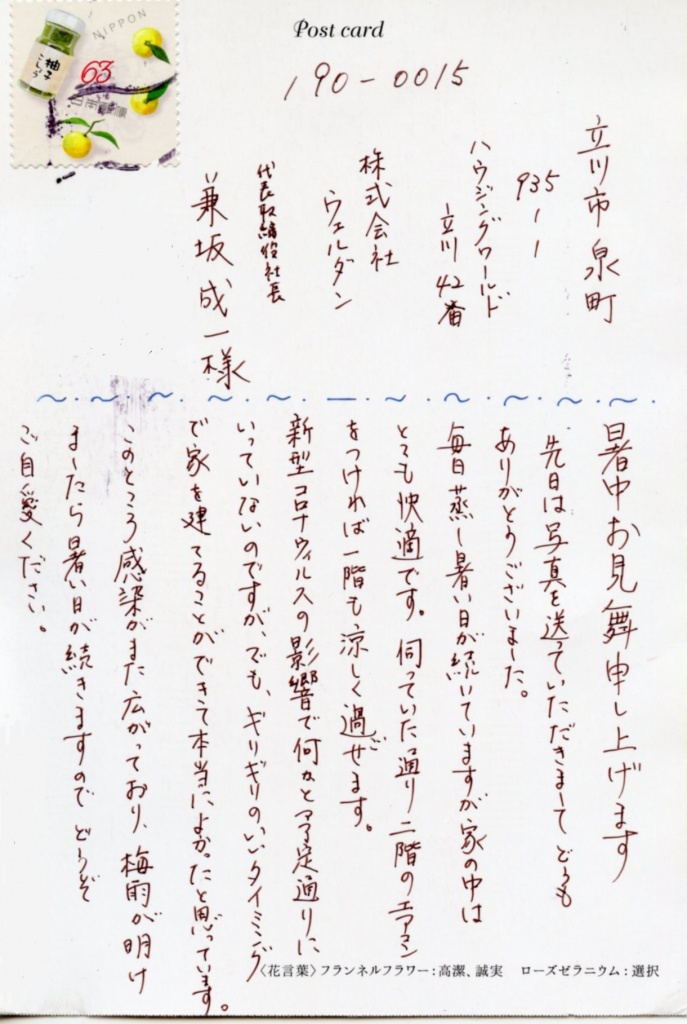 Post card
NIPPON
63
柚子
こしょう
190-0015
立川市泉町
935-1-1
ハウジングワールド
立川42番
株式会社
ウェルダン
代表取締役社長
兼坂成一様
暑中お見舞申し上げます
先日は写真を送っていただきまして どうも
ありがとうございました。
毎日蒸し暑い日が続いていますが家の中は
とても快適です。伺っていた通り二階のエアコン
をつければ一階も涼しく過ごせます。
新型コロナウィルスの影響で何かと予定通りに
いっていないのですが、でも、ギリギリのいいタイミング
で家を建てることができて本当によかったと思っています。
このところ感染がまた広がっており、梅雨が明け
ましたら暑い日が続きますので どうぞ
ご自愛ください。
〈花言葉〉フランネルフラワー：高潔、誠実　ローズゼラニウム：選択